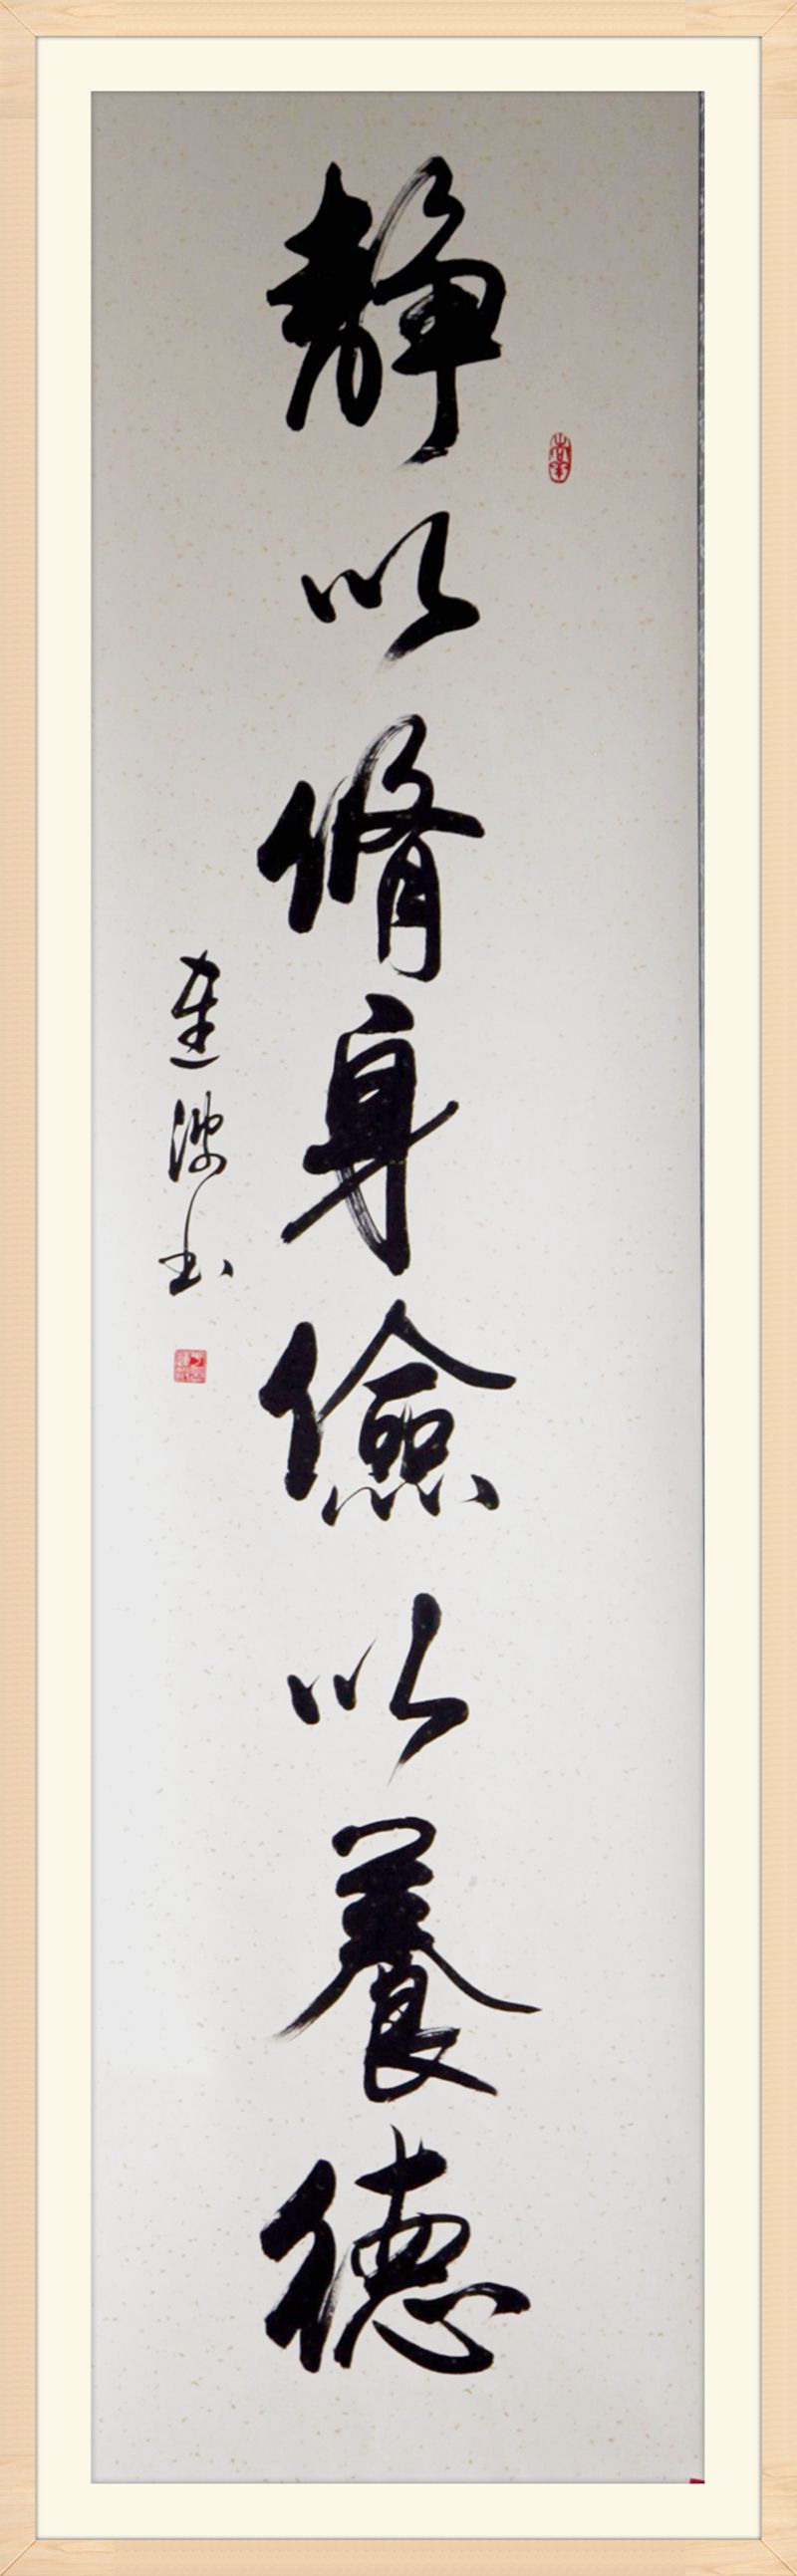 静以脩身儉以養德
波书